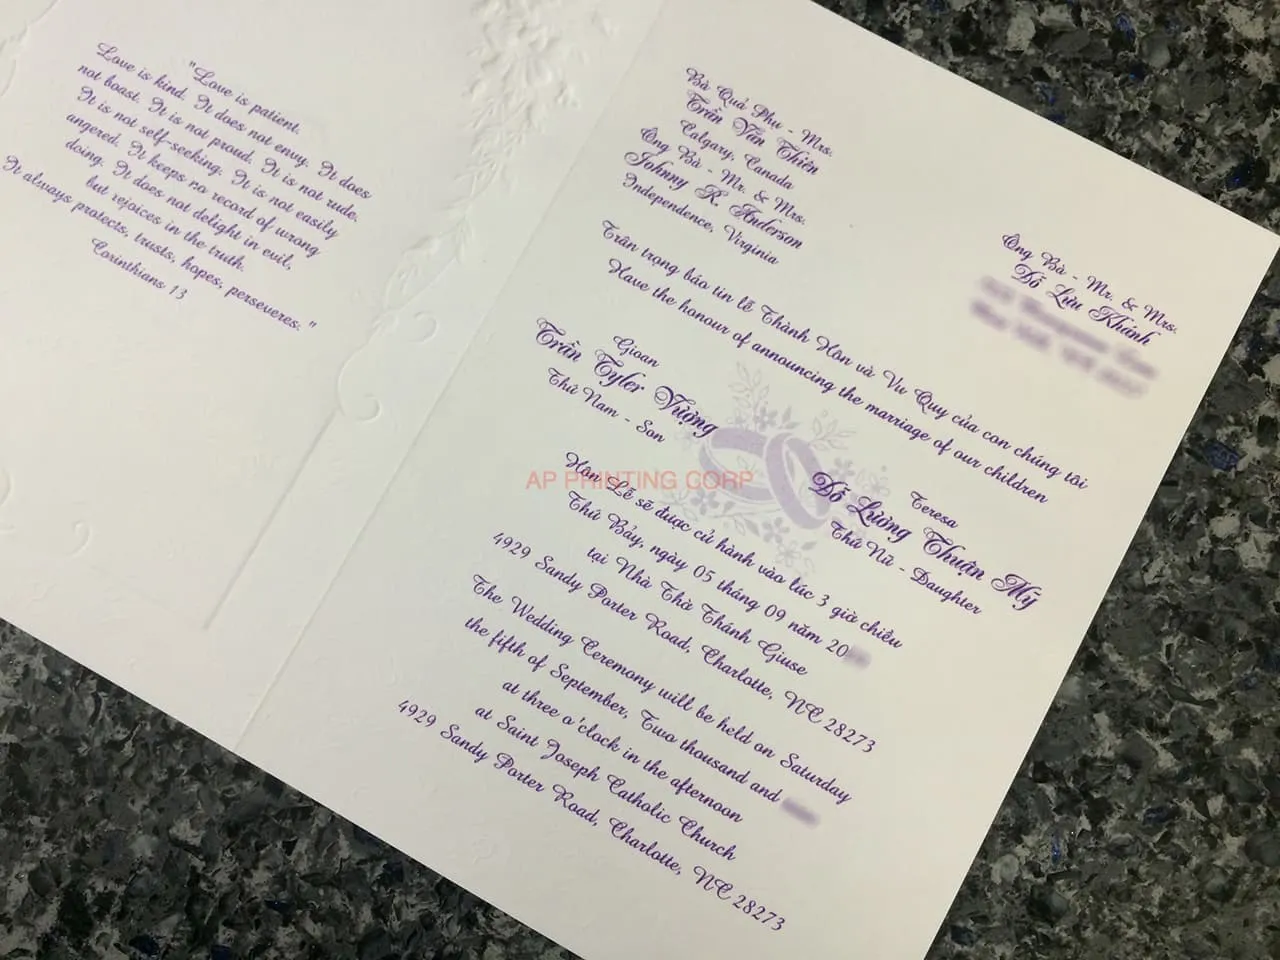 "Love is patient.
Love is kind. It does not envy. It does
not boast. It is not proud. It is not rude.
It is not self-seeking. It is not easily
angered. It keeps no record of wrong
doing. It does not delight in evil,
but rejoices in the truth.
It always protects, trusts, hopes, perseveres."
Corinthians 13
Bà Quả Phụ - Mrs.
Trần Văn Thiên
Calgary, Canada
Ông Bà - Mr. & Mrs.
Johnny R. Anderson
Independence, Virginia
Ông Bà - Mr. & Mrs.
Đỗ Lưu Khánh
Trân trọng báo tin lễ Thành Hôn và Vu Quy của con chúng tôi
Have the honour of announcing the marriage of our children
Gioan
Trần Tyler Vượng
Thứ Nam - Son
Teresa
Đỗ Lường Thuận Mỹ
Thứ Nữ - Daughter
AP PRINTING CORP
Hôn Lễ sẽ được cử hành vào lúc 3 giờ chiều
Thứ Bảy, ngày 05 tháng 09 năm 20
tại Nhà Thờ Thánh Giuse
4929 Sandy Porter Road, Charlotte, NC 28273
The Wedding Ceremony will be held on Saturday
the fifth of September, Two thousand and
at three o'clock in the afternoon
at Saint Joseph Catholic Church
4929 Sandy Porter Road, Charlotte, NC 28273